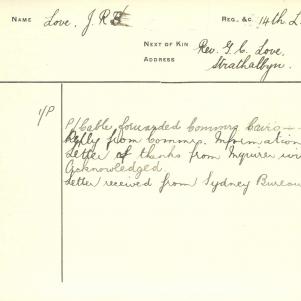 NAME Love, J.R.B REG., &C. 14th L.
NEXT OF KIN Rev. G. C. Love,
ADDRESS Strathalbyn.
1/P
P/Cable forwarded Commrg Cairo —
Reply from Commrg. Information
Letter of thanks from Inquirer
Acknowledged
Letter received from Sydney Bureau